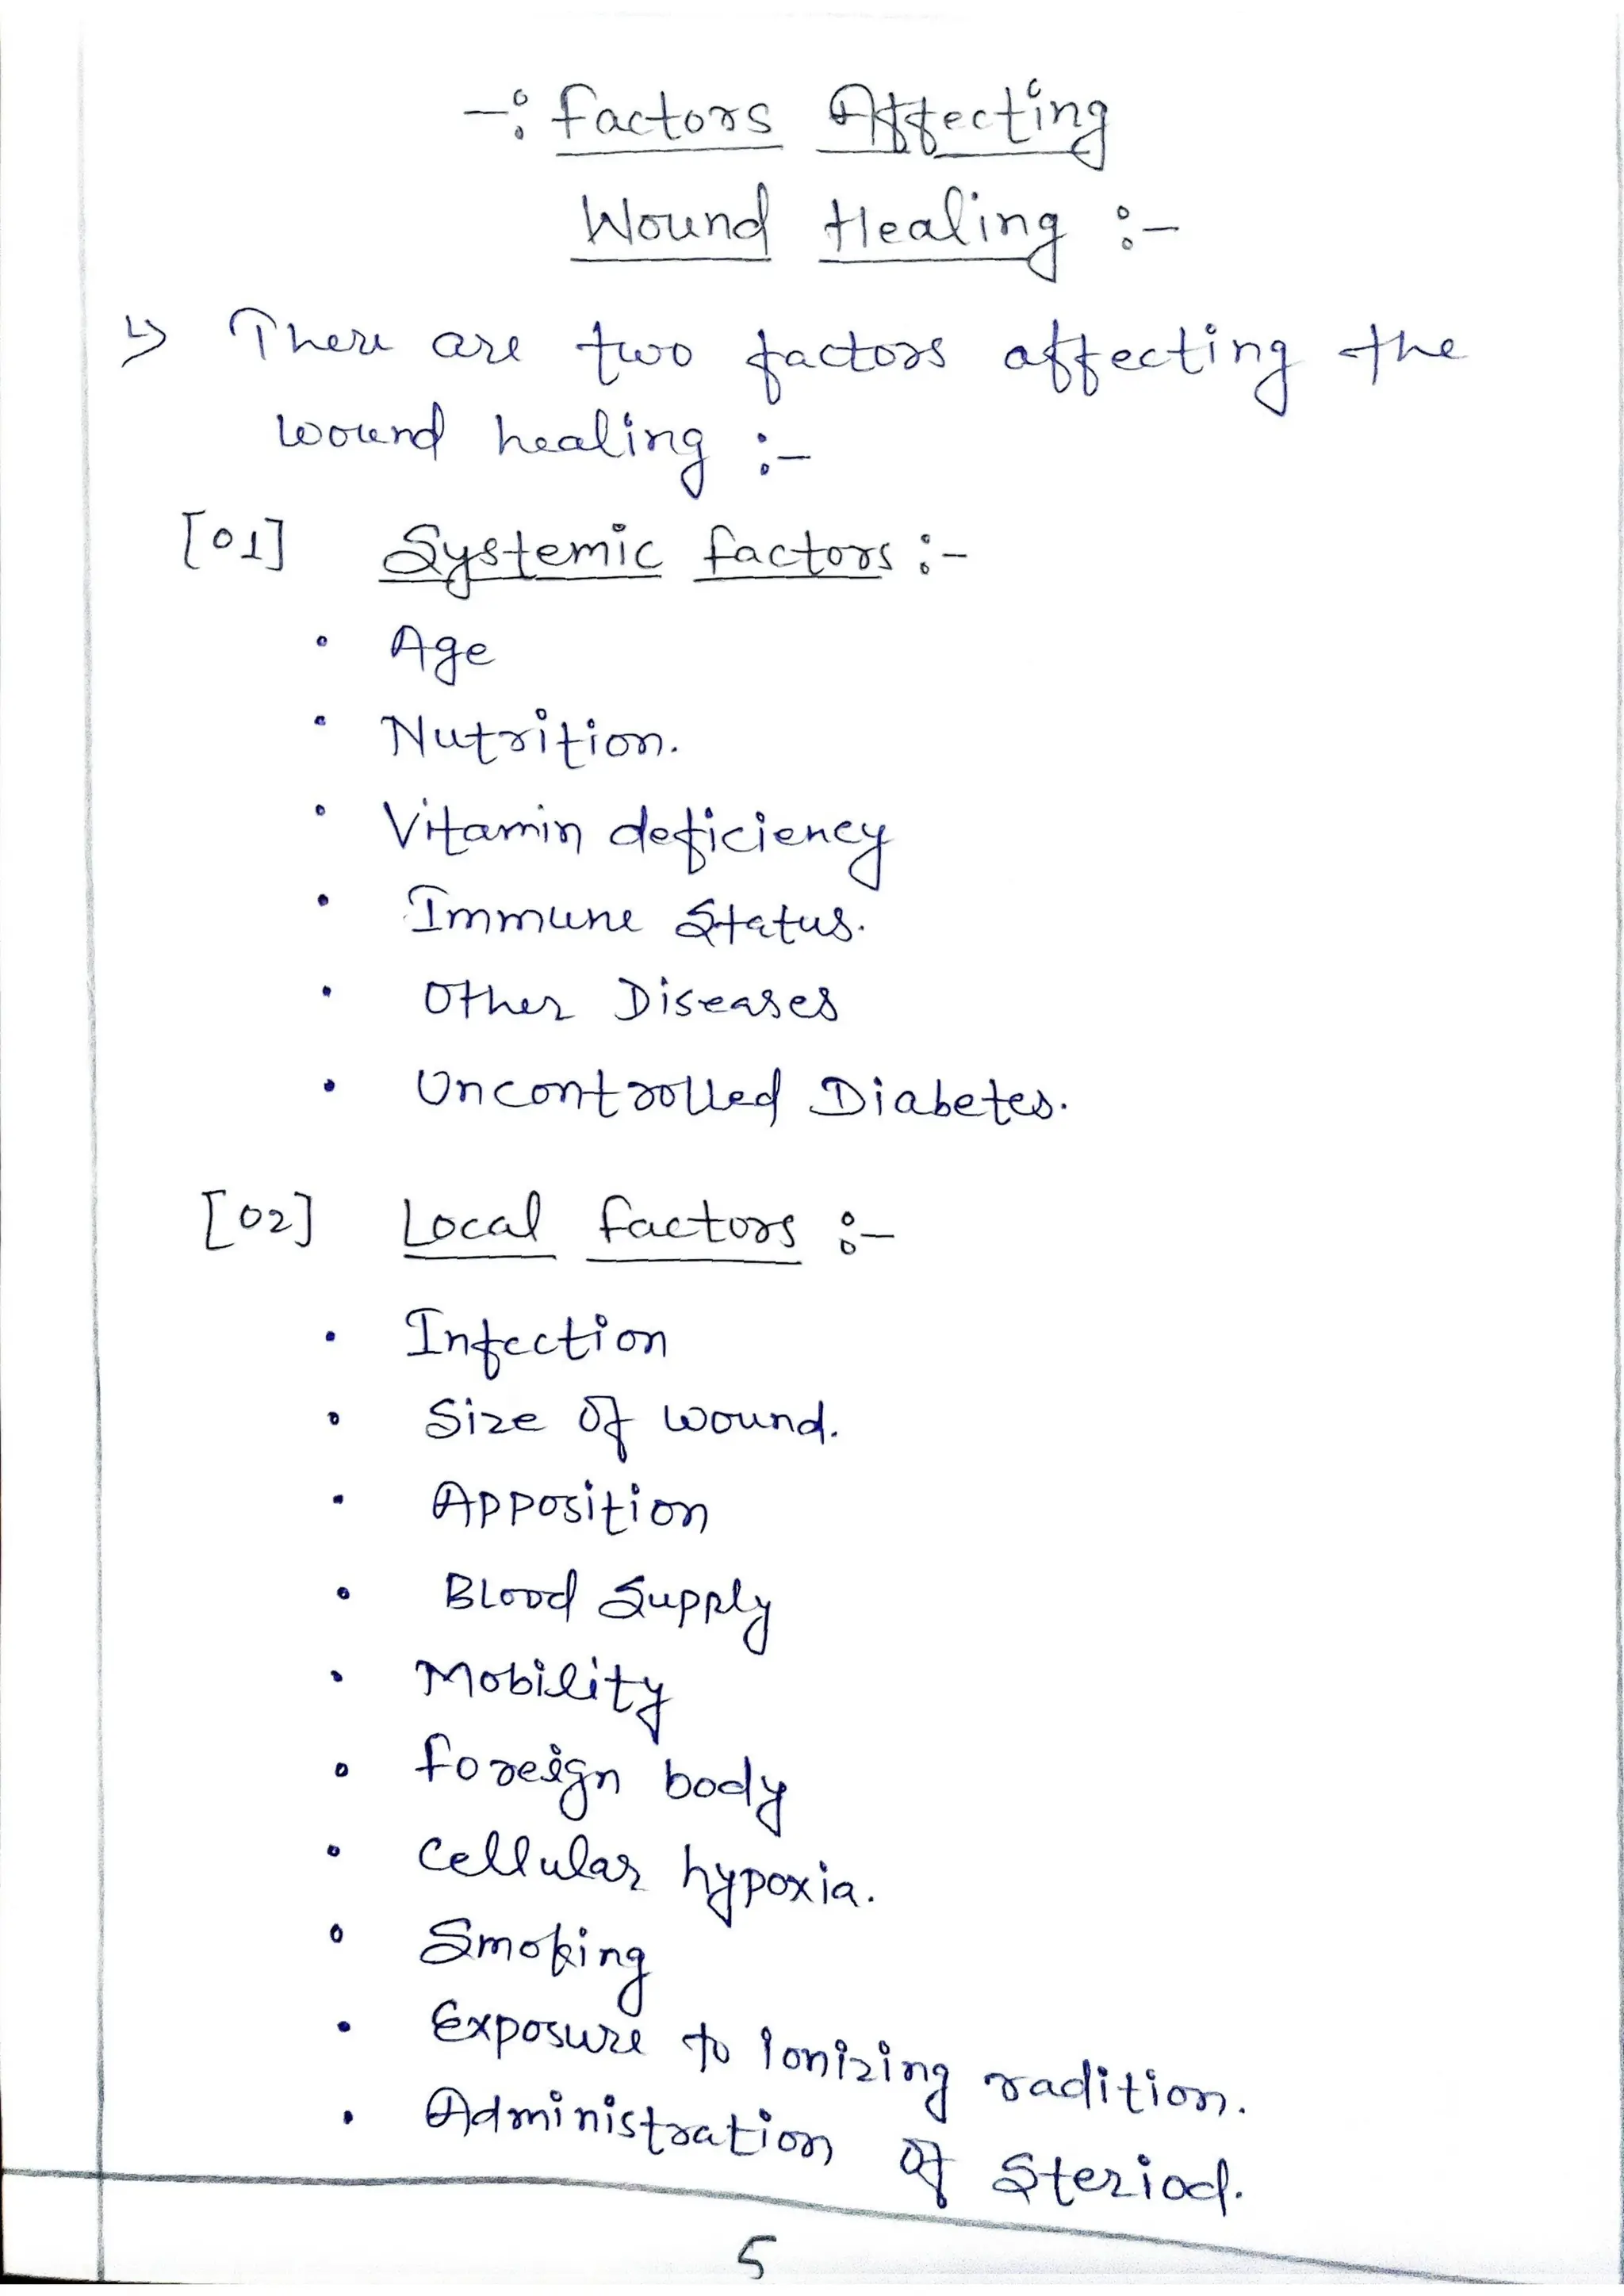 -: Factors Affecting
Wound Healing :-
↳ There are two factors affecting the
wound healing :-
[01] Systemic factors :-
• Age
• Nutrition.
• Vitamin deficiency
• Immune Status.
• Other Diseases
• Uncontrolled Diabetes.
[02] Local factors :-
• Infection
• Size of wound.
• Apposition
• Blood Supply
• Mobility
• foreign body
• Cellular hypoxia.
• Smoking
• Exposure to ionizing radition.
• Administration of Steriod.
5